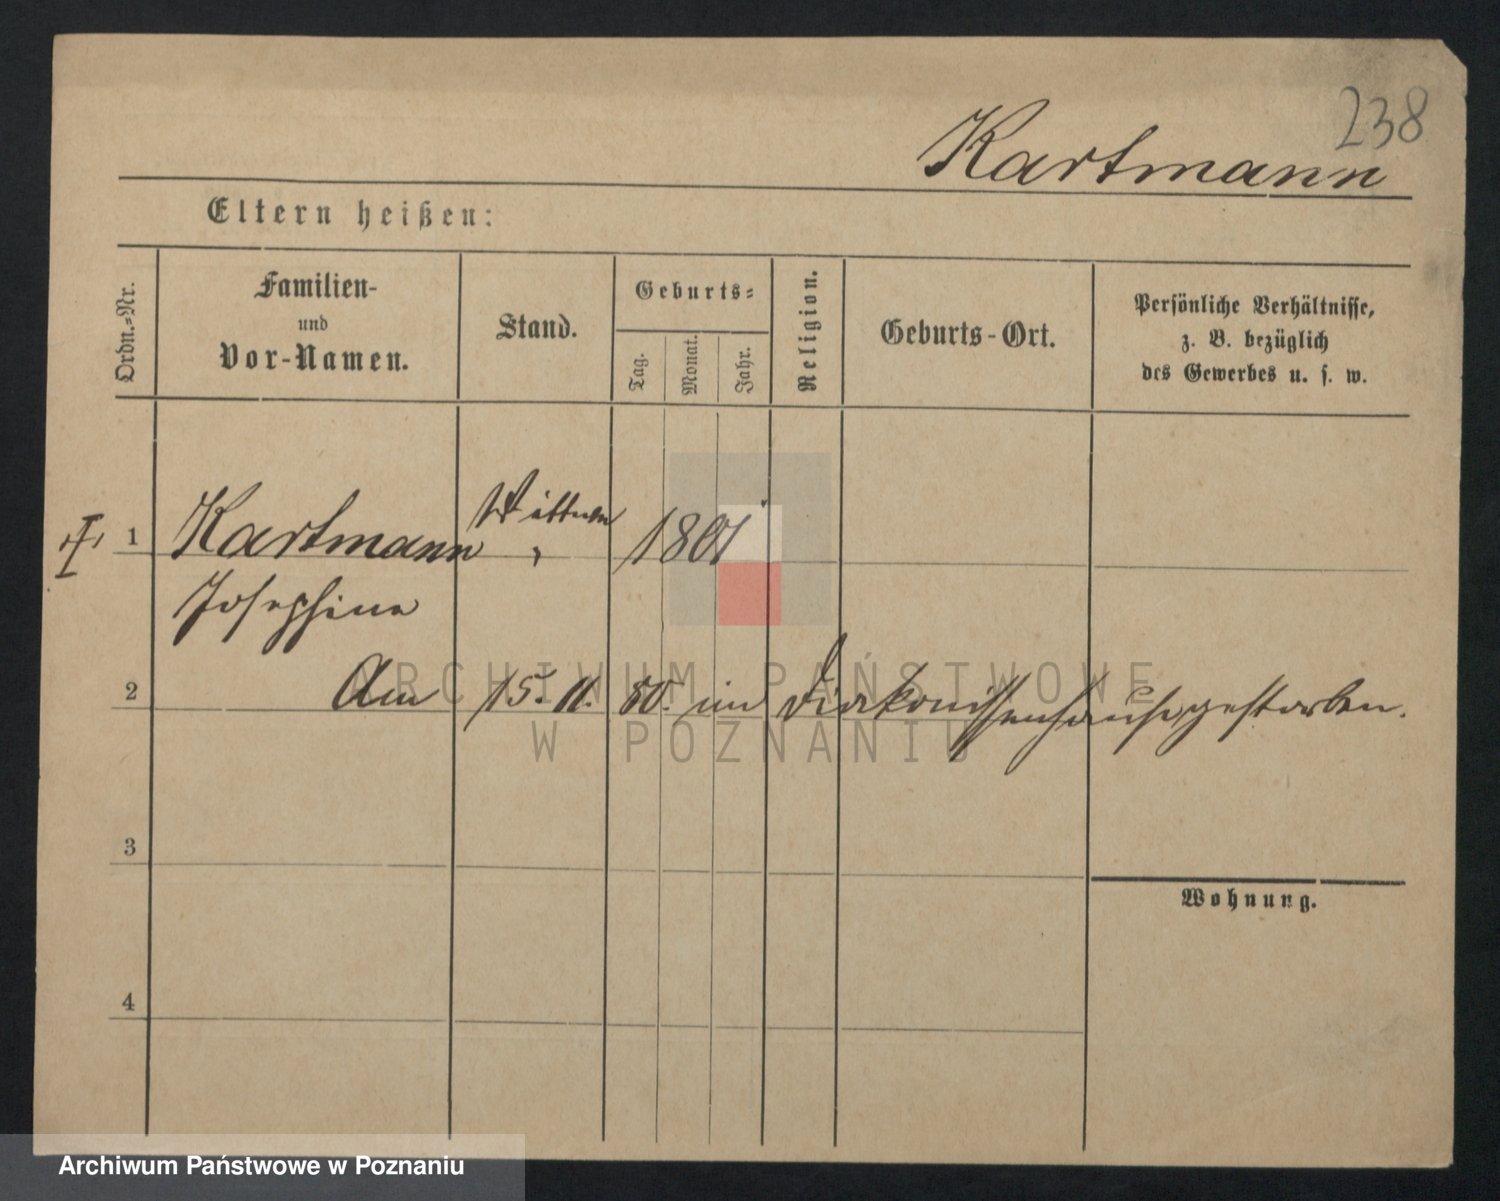 238
Kartmann
Eltern heißen:
Ordn.-Nr.
Familien-
und
Vor-Namen.
Stand.
Geburts-
Tag.
Monat.
Jahr.
Religion.
Geburts-Ort.
Persönliche Verhältnisse,
z. B. bezüglich
des Gewerbes u. s. w.
1 Kartmann 1801
Josephine
2 Am 15. 11. 80. im Diakonissenhause gestorben.
3
Wohnung.
4
ARCHIWUM PAŃSTWOWE
W POZNANIU
Archiwum Państwowe w Poznaniu